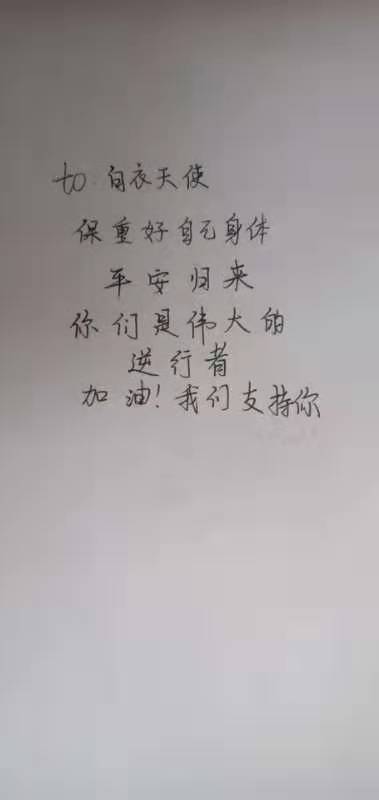 to.白衣天使
保重好自己身体
平安归来
你们是伟大的
逆行者
加油！我们支持你